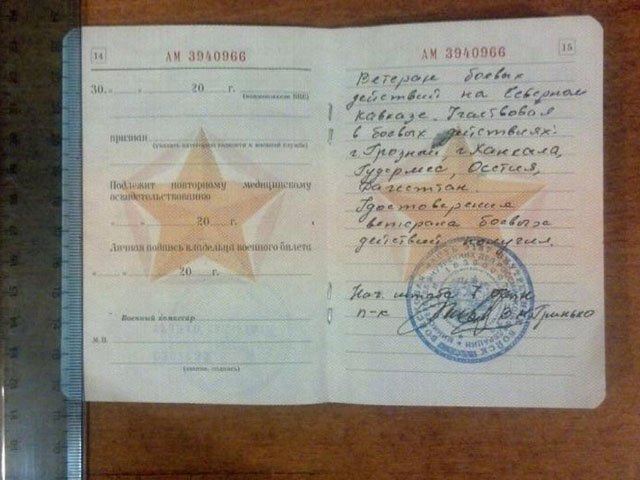 14
АМ 3940966
30. „ „ 20 г.
(наименование ВВК)
признан
(указать категорию годности к военной службе)
Подлежит повторному медицинскому
освидетельствованию
„ „ 20 г.
Личная подпись владельца военного билета
„ „ 20 г.
Военный комиссар
М.П.
(звание, подпись)
15
АМ 3940966
Ветеран боевых
действий на Северном
Кавказе. Участвовал
в боевых действиях:
г. Грозный, г. Ханкала,
Гудермес, Осетия,
Удостоверения
ветерана боевых
действий получил.
Нач. штаба 7
п-к